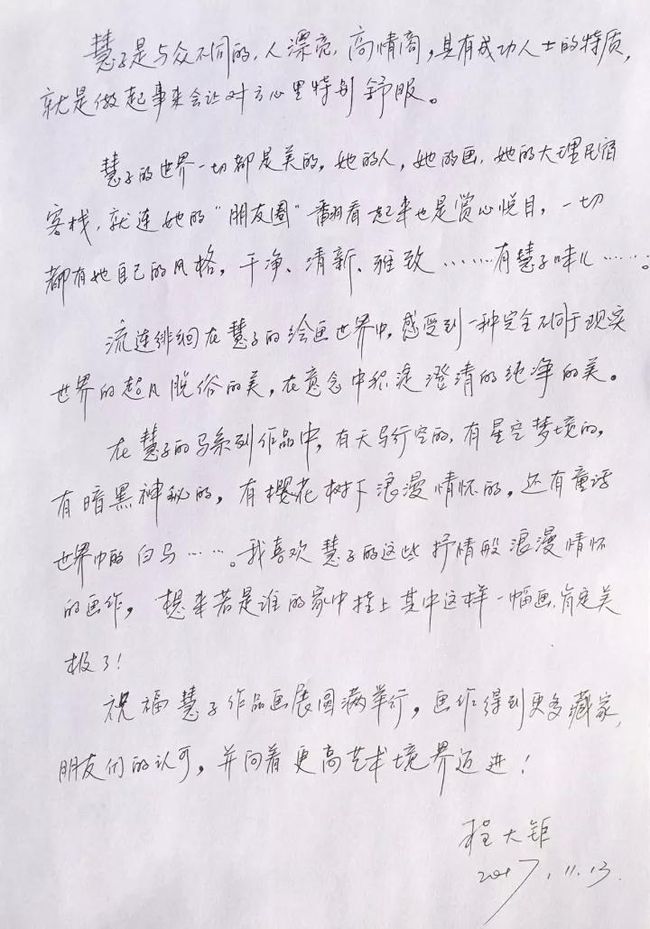 慧子是与众不同的,人漂亮,高情商,具有成功人士的特质,
就是做起事来会让对方心里特别舒服。
慧子的世界一切都是美的,她的人,她的画,她的大理民宿
客栈,就连她的“朋友圈”翻看起来也是赏心悦目,一切
都有她自己的风格,干净、清新、雅致……有慧子味儿……。
流连徘徊在慧子的绘画世界中,感受到一种完全不同于现实
世界的超凡脱俗的美,在意念中积淀澄清的纯净的美。
在慧子的马系列作品中,有天马行空的,有星空梦境的,
有暗黑神秘的,有樱花树下浪漫情怀的,还有童话
世界中的白马……。我喜欢慧子的这些抒情般浪漫情怀
的画作,想来若是谁的家中挂上其中这样一幅画,肯定美
极了!
祝福慧子作品画展圆满举行,画作得到更多藏家,
朋友们的认可,并向着更高艺术境界迈进!
程大钜
2017.11.13.